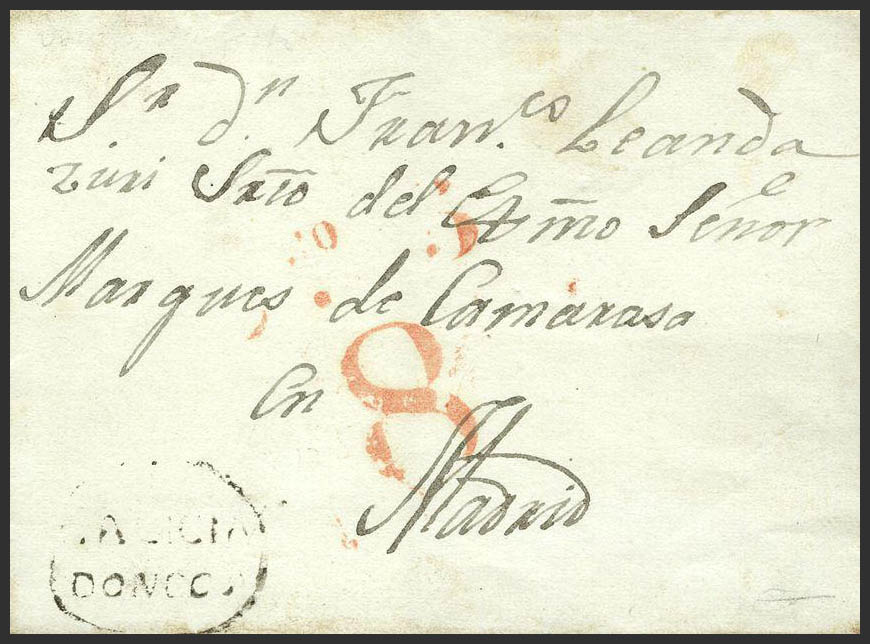 Sr dn. Franco. Leanda
zuri Srio del Exmo Señor
Marques de Camarasa
en
8
Madrid
ALICIA
DONCO